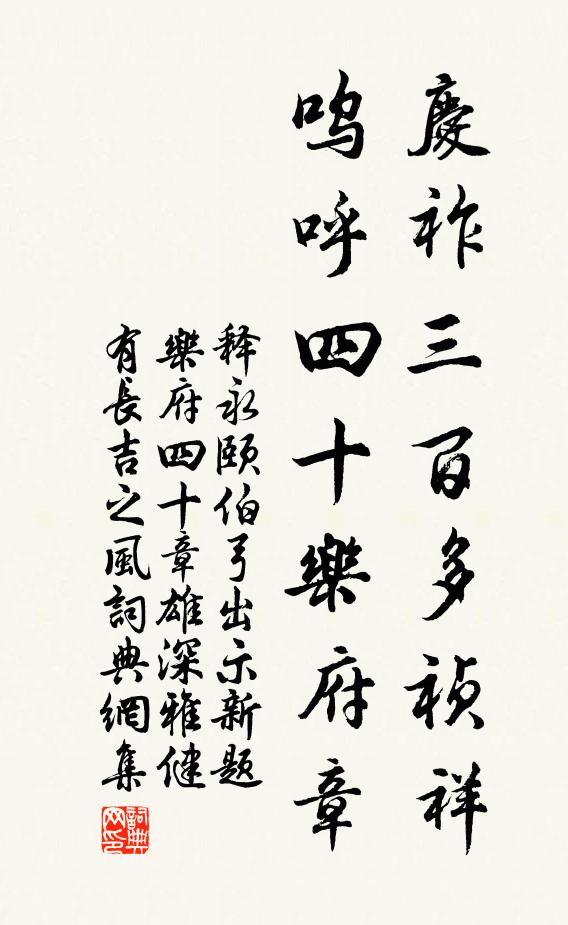 慶祚三百多禎祥
嗚呼四十樂府章
释永颐伯弓出示新题
樂府四十章雄深雅健
有長吉之風詞典網集
詞典
网印